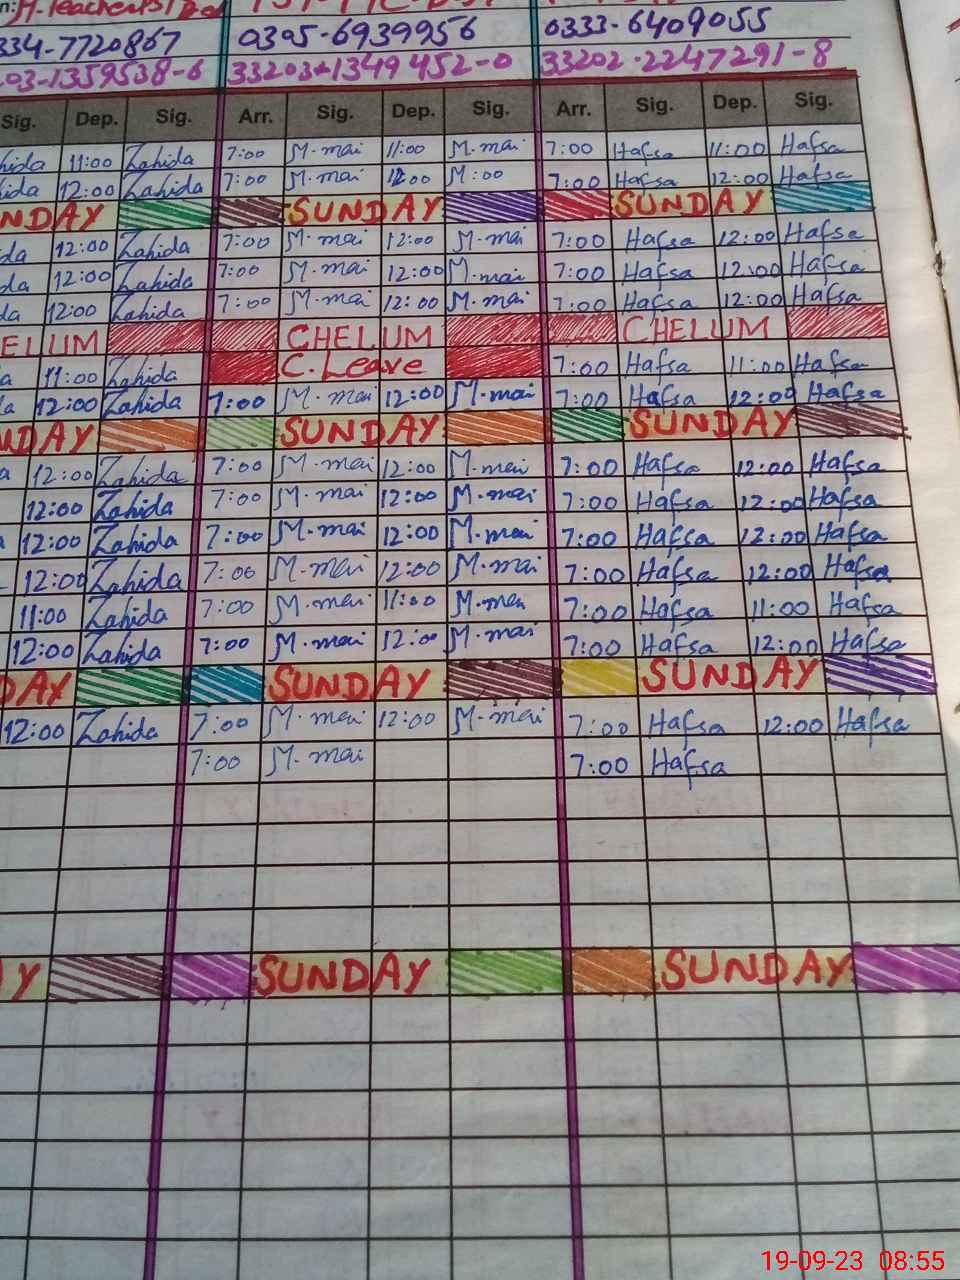 334-7720867 0305-6939956 0333-6409055
203-1359538-6 33203-1349452-0 33202-2247291-8
Sig. Dep. Sig. Arr. Sig. Dep. Sig. Arr. Sig. Dep. Sig.
hida 11:00 Zahida 7:00 M.mai 11:00 M.mai 7:00 Hafsa 11:00 Hafsa
ida 12:00 Zahida 7:00 M.mai 12:00 M:00 7:00 Hafsa 12:00 Hafsa
NDAY SUNDAY SUNDAY
da 12:00 Zahida 7:00 M.mai 12:00 M.mai 7:00 Hafsa 12:00 Hafsa
da 12:00 Zahida 7:00 M.mai 12:00 M.mai 7:00 Hafsa 12:00 Hafsa
da 12:00 Zahida 7:00 M.mai 12:00 M.mai 7:00 Hafsa 12:00 Hafsa
ELUM CHELUM CHELUM
a 11:00 Zahida C.Leave 7:00 Hafsa 11:00 Hafsa
a 12:00 Zahida 7:00 M.mai 12:00 M.mai 7:00 Hafsa 12:00 Hafsa
NDAY SUNDAY SUNDAY
a 12:00 Zahida 7:00 M.mai 12:00 M.mai 7:00 Hafsa 12:00 Hafsa
12:00 Zahida 7:00 M.mai 12:00 M.mai 7:00 Hafsa 12:00 Hafsa
12:00 Zahida 7:00 M.mai 12:00 M.mai 7:00 Hafsa 12:00 Hafsa
12:00 Zahida 7:00 M.mai 12:00 M.mai 7:00 Hafsa 12:00 Hafsa
11:00 Zahida 7:00 M.mai 11:00 M.mai 7:00 Hafsa 11:00 Hafsa
12:00 Zahida 7:00 M.mai 12:00 M.mai 7:00 Hafsa 12:00 Hafsa
DAY SUNDAY SUNDAY
12:00 Zahida 7:00 M.mai 12:00 M.mai 7:00 Hafsa 12:00 Hafsa
7:00 M.mai 7:00 Hafsa
Y SUNDAY SUNDAY
19-09-23 08:55